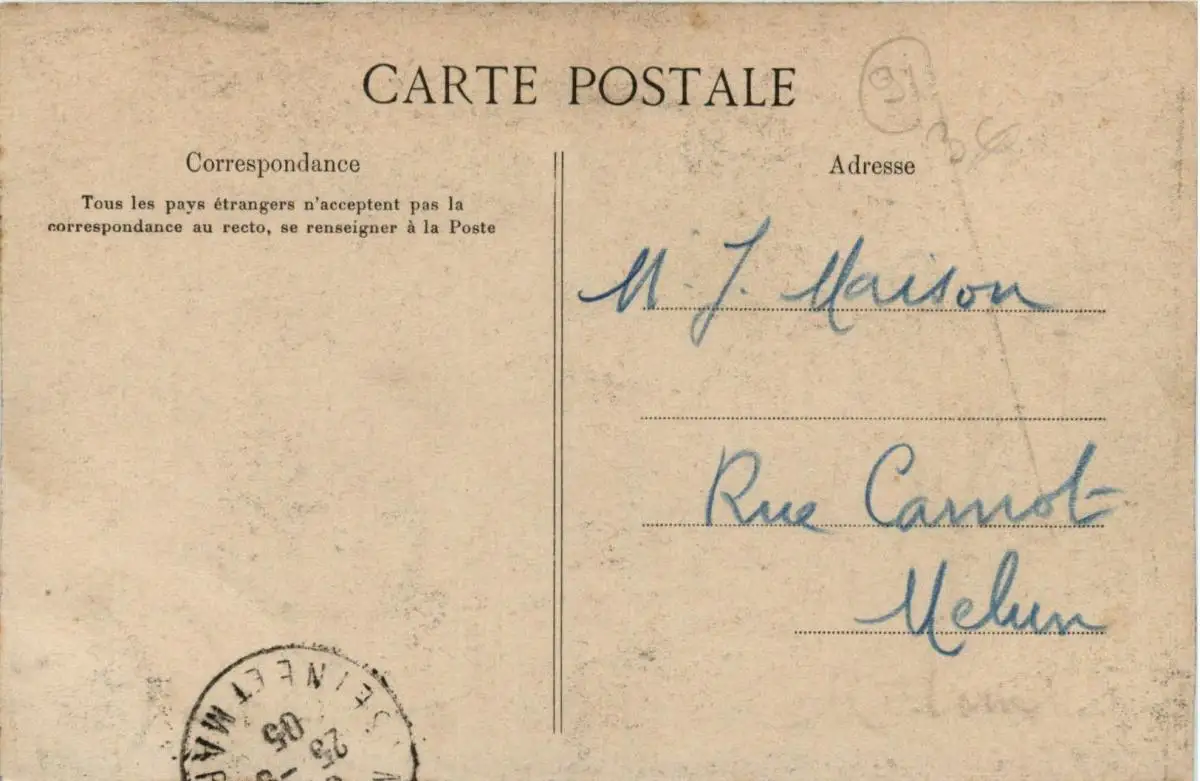 CARTE POSTALE
91
36
Correspondance
Tous les pays étrangers n'acceptent pas la
correspondance au recto, se renseigner à la Poste
Adresse
M. J. Maison
Rue Carnot
Melun
SEINE ET MAR
23
05